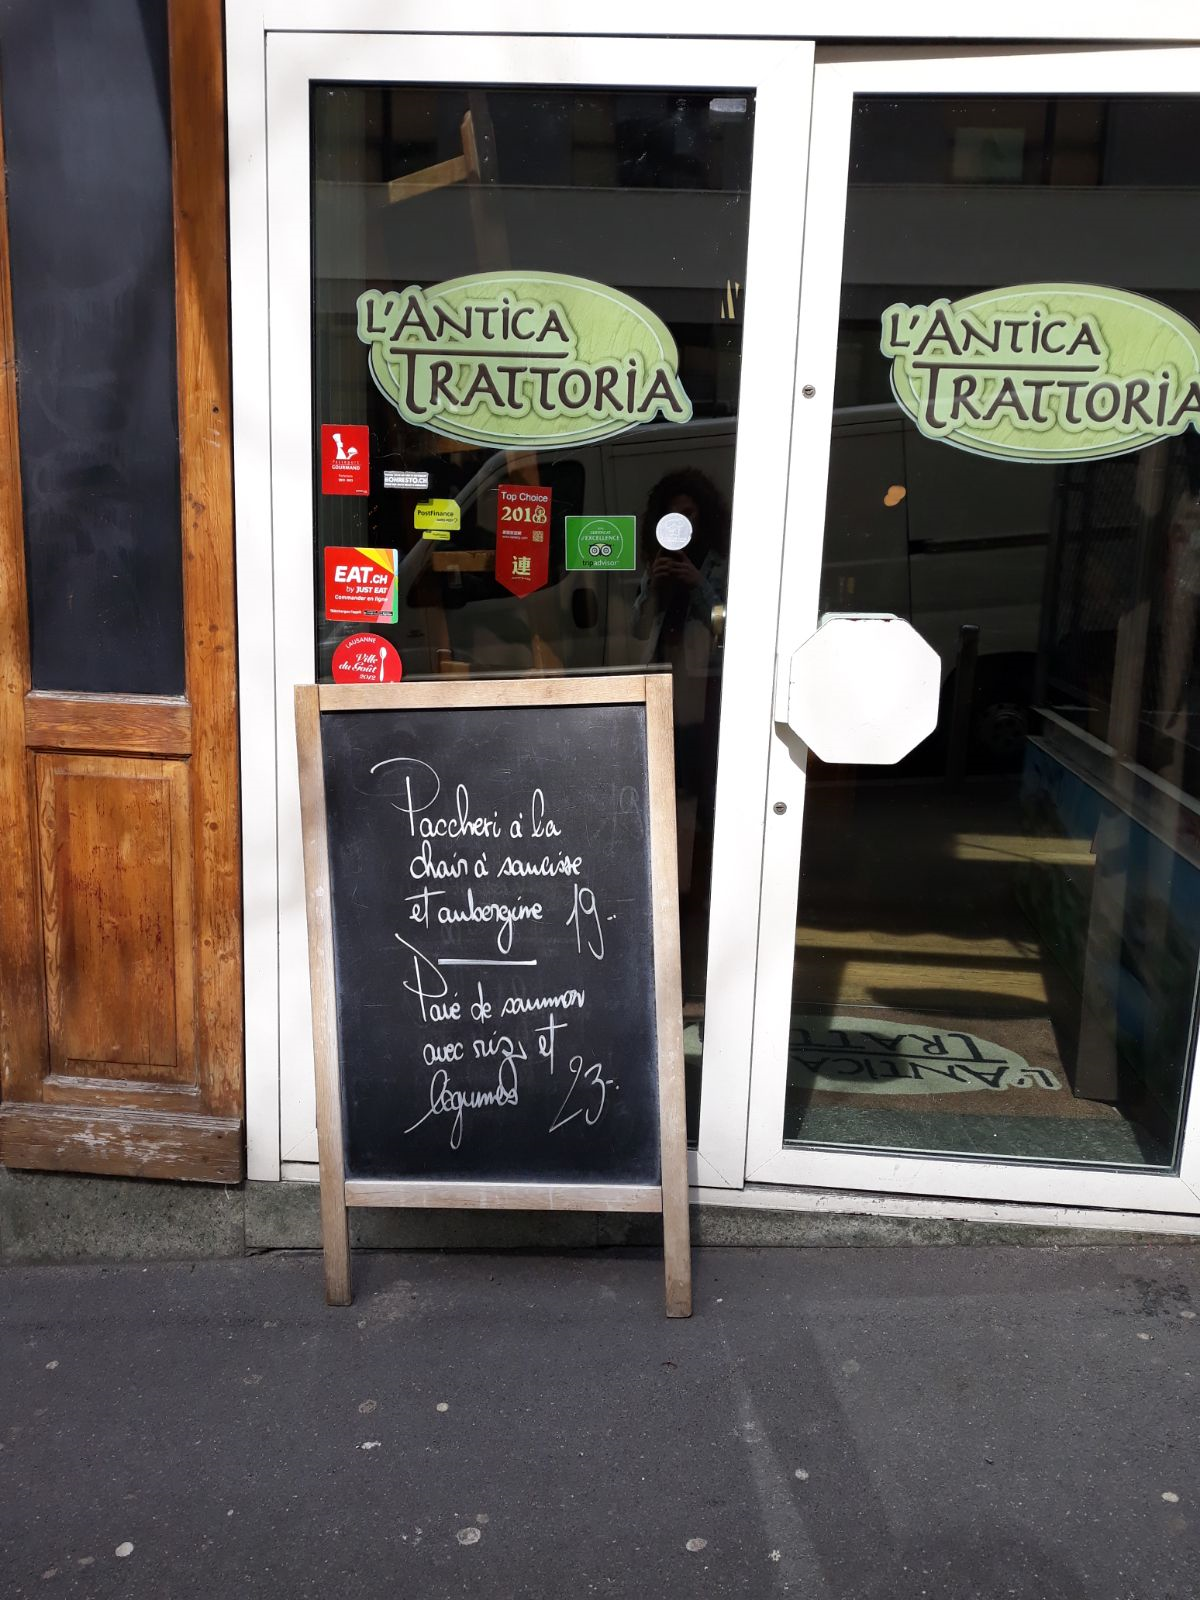 L'ANTICA
TRATTORIA
L'ANTICA
TRATTORIA
GOURMAND
BONRESTO.CH
PostFinance
Top Choice
2018
連
L'EXCELLENCE
tripadvisor
EAT.CH
by JUST EAT
Commander en ligne
LAUSANNE
Ville
du Goût
2012
Paccheri à la
chair à saucisse
et aubergine 19.-
Pavé de saumon
avec riz et
légumes 23.-
L'ANTICA
TRATT